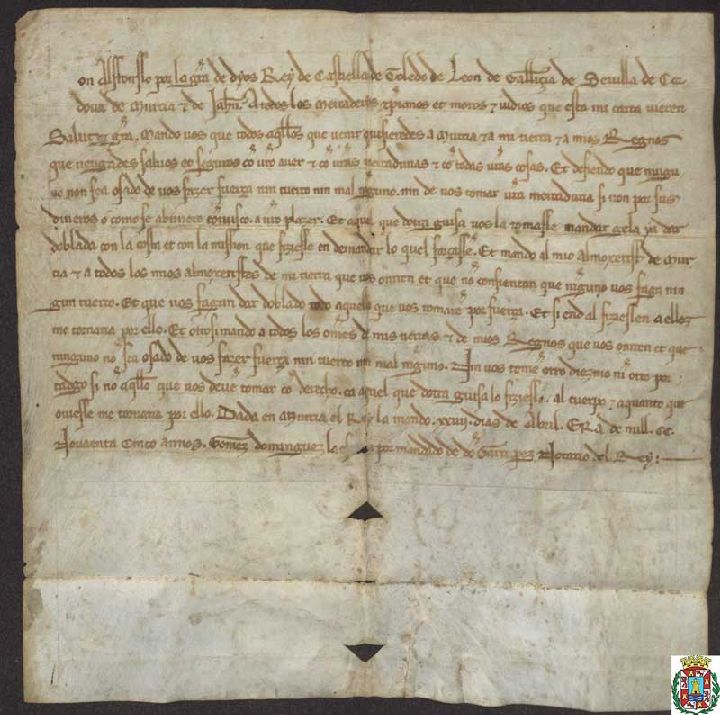 on Alfonsso por la gra de dyos Rey de Castiella de Toledo de Leon de Gallizia de Sevilla de Cor
dova de Murcia & de Jahn. A todos los Mercaderos xpianos et moros & iudios que esta mi carta vieren
Salut & gra. Mando vos que todos aqllos que venir quisieredes a Murcia & a mi tierra & a mios Regnos
que vengades salvos et seguros co uro aver & co uras mercadurias & co todas uras cosas. Et defiendo que ningu
no non sea osado de vos fazer fuerça nin tuerto nin mal niguno. nin de vos tomar ura mercaduria si non por sus
dineros o como se abiniere convusco. a uro plazer. Et aquel que dotra guisa vos la tomasse mandar gela ya dar
doblada con la costa et con la mission que fiziesse en demandar lo quel forçasse. Et mando al mio Almoxerif de Mur
cia & a todos los mios almoxerifes de mi tierra que vos onrren et que no consientan que niguno vos faga nin
gun tuerto. Et que vos fagan dar doblado todo aquelo que vos tomare por fuerça. Et si end al fiziessen a ellos
me tornaria por ello. Et otrosi mando a todos los omes de mis tierras & de mios Regnos que vos onrren et que
ninguno no sea osado de vos fazer fuerça nin tuerto nin mal niguno. Nin vos tome otro diezmo ni otro por
tadgo si no aqllo que vos deve tomar co derecho. ca aquel que dotra guisa lo fiziesse. al cuerpo & aquanto que
oviesse me tornaria por ello. Dada en Murcia el Rey la mando. dias de Abril. Era de mill. CC.
Novaenta Cinco annos. Gomez dominguez la por mandado de do Garci perez Notario del Rey: